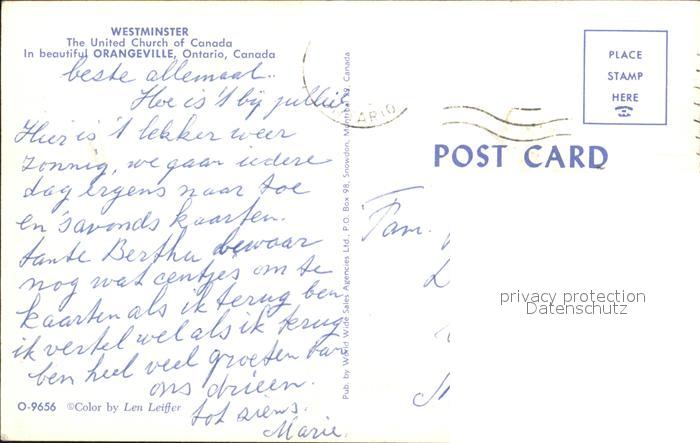 WESTMINSTER
The United Church of Canada
In beautiful ORANGEVILLE, Ontario, Canada
beste allemaal..
Hoe is 't bij jullie
Hier is 't lekker weer
zonnig, we gaan iedere
dag ergens naar toe
en 's avonds kaarten.
tante Bertha bewaar
nog wat centjes om te
kaarten als ik terug ben
ik vertel wel als ik terug
ben heel veel groeten van
ons drieën.
tot ziens.
Marie.
O-9656 ©Color by Len Leiffer
Pub. by World Wide Sales Agencies Ltd., P.O. Box 98, Snowdon, Montreal 29, Canada
ARIO
PLACE
STAMP
HERE
POST CARD
Fam.
privacy protection
Datenschutz